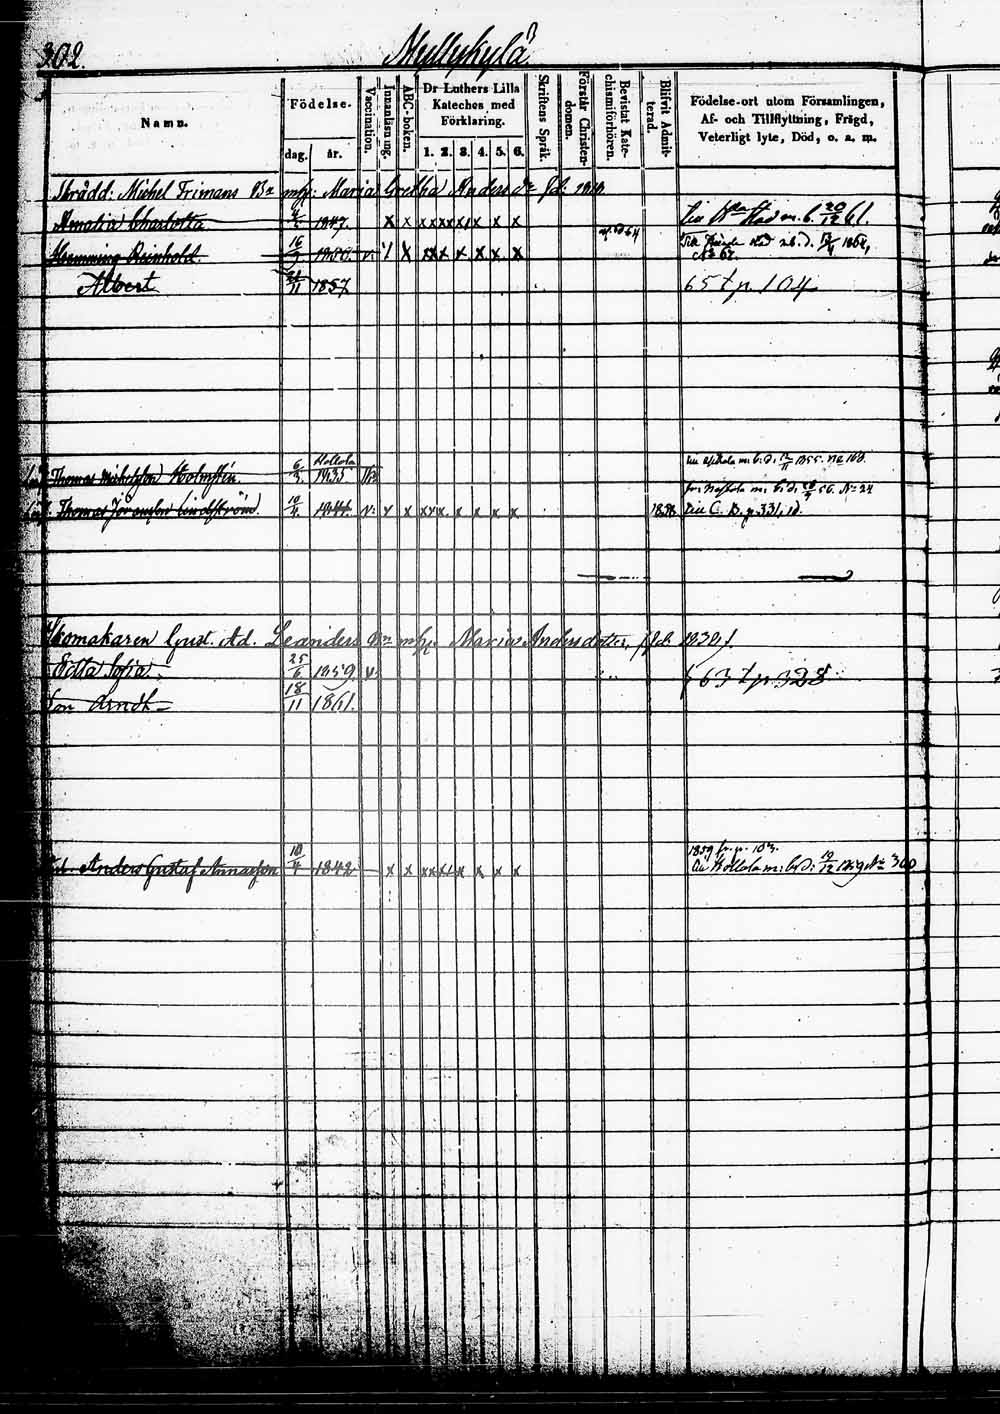 302.
Myllykylä
Namn.
Födelse.
dag. år.
Vaccination.
Innanläsning.
ABC-boken.
Dr Luthers Lilla
Kateches med
Förklaring.
1. 2. 3. 4. 5. 6.
Skriftens Språk.
Förstår Christen-
domen.
Bevistat Kate-
chismiförhören.
Blifvit Admit-
terad.
Födelse-ort utom Församlingen,
Af- och Tillflyttning, Frägd,
Veterligt lyte, Död, o. a. m.
Skrädd: Michel Frimans Bn mfh: Maria Gretha Anders Dr fd:
Amalia Charlotta 1847. x x x x x x x x x 20/12 61.
Hemming Reinhold. 16/ 1850. v. x x x x x x x 1864,
Albert /11 1857 65 t p. 104
Hollola
Thomas Michelsson Holmstén. 6/ 1835 m. b. d. /11 1855. No 160.
Thomas Göransson Lindström. 10/ 1844. v. x x x x x x x x x 1858. Till C. B. p. 331, d.
fr. Nastola m. b. d. 56. No 24
Skomakaren Gust. Ad. Leanders Bn mfh. Maria Andersdotter, fd. 1830,
Edla Sofia. 25/6 1859 v. 63 t p. 328
Son Arndt 18/11 1861.
1859 fr. p. 103.
Anders Gustaf Annasson 10/4 1842 — x x x x x x x x x Till Hollola m: b. d: /12 No 300